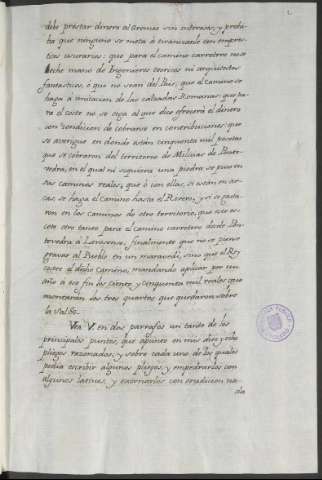 debe prestar dinero al Gremio sin intereses, y probi-
ba que ninguno se meta à traxinante con empres-
ticos usurarios: que para el camino carretero no se
eche mano de Ingenieros teoricos ni arquitectos
fantasticos, o que no sean del Pais; que el camino se
haga à imitacion de las calzadas Romanas: que pa-
ra el coste no se oiga al que dice ofrecerà el dinero
con condicion de cobrarse en contribuciones: que
se averigue en donde estàn cinquenta mil pesetas
que se cobraron del territorio de Milicias de Ponte-
vedra, en el qual ni siquiera una piedra se puso en
sus caminos reales; que ò con ellas, si estàn en ar-
cas, se haga el camino hasta el Ribero, y si se gasta-
ron en los caminos de otro territorio, que este es-
cote otro tanto para el camino carretero desde Pon-
tevedra à Lerez: finalmente que no se piense
gravar al Pueblo en un maravedi, sino que el Rey
costee el dicho camino, mandando aplicar por un
año à ese fin los ciento, y cinquenta mil reales que
montaràn los tres quartos que quedaron sobre
la Sal &c.
Vea V. en dos parrafos un tanto de los
principales puntos, que apunto en mis diez y ocho
pliegos razonados, y sobre cada uno de los quales
podia escribir algunos pliegos, y empedrarlos con
algunos latines, y exornarlos con erudicion na-
da